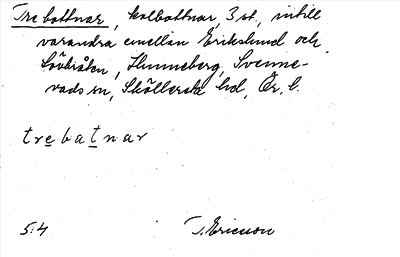 Tre bottnar, kolbottnar, 3 st., intill
varandra emellan Erikslund och
Lövbråten, Hunneberg, Svenne-
vads sn, Sköllersta hd, Ör. l.
trebatnar
5:4 T. Ericsson